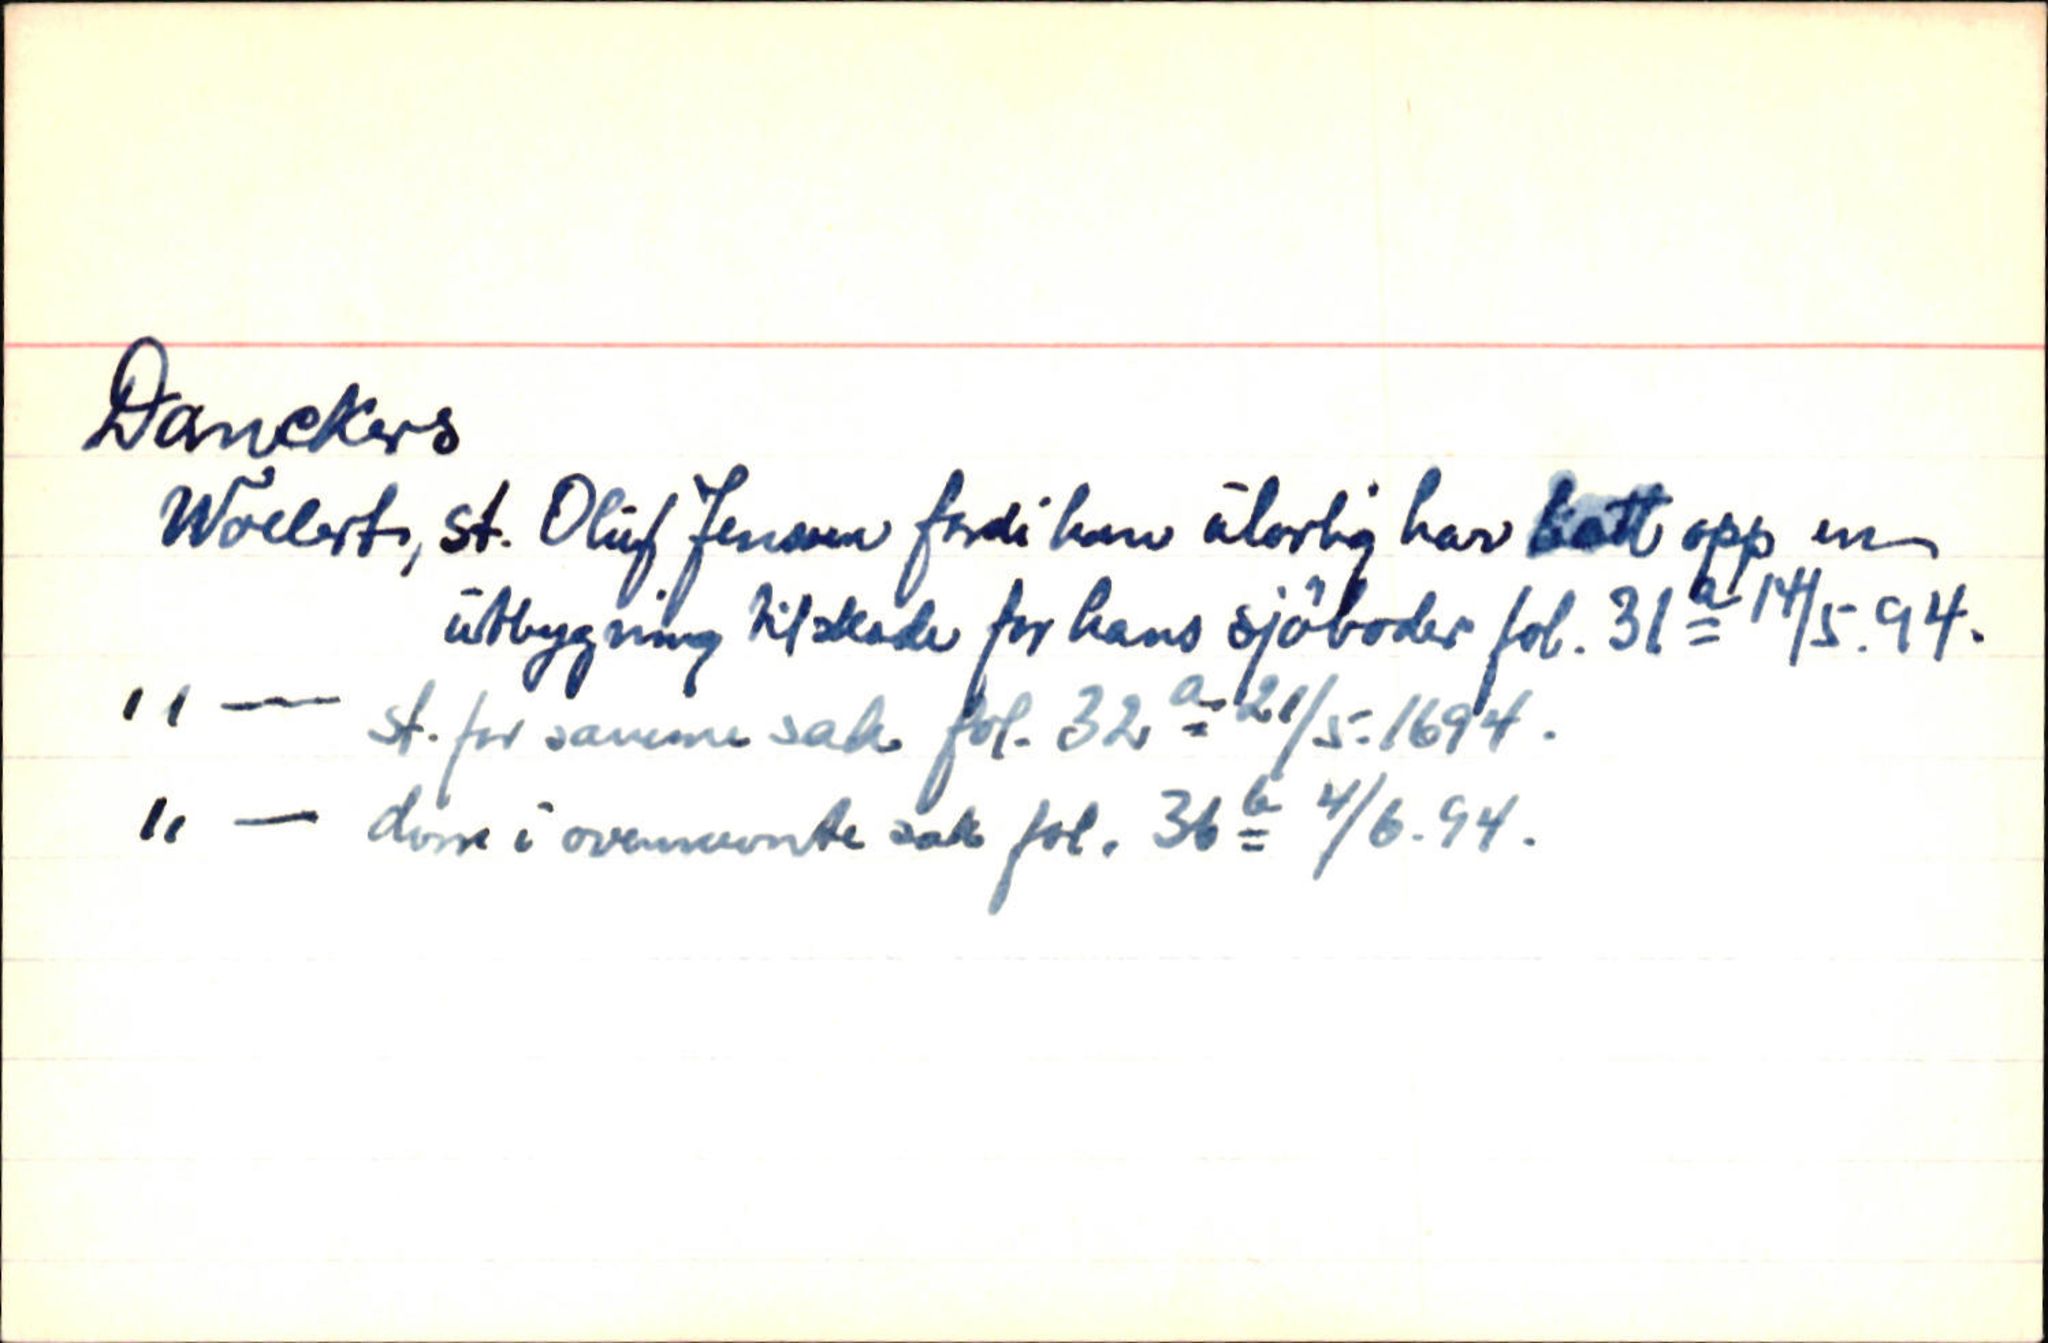 Danckers
Wöllert, st. Oluf Jensen fordi han ulovlig har satt opp en
utbygning til skade for hans sjöboder fol. 31a 14/5.94.
" — st. for samme sak fol. 32a 21/5.1694.
" — dom i ovennevnte sak fol. 36b 4/6.94.